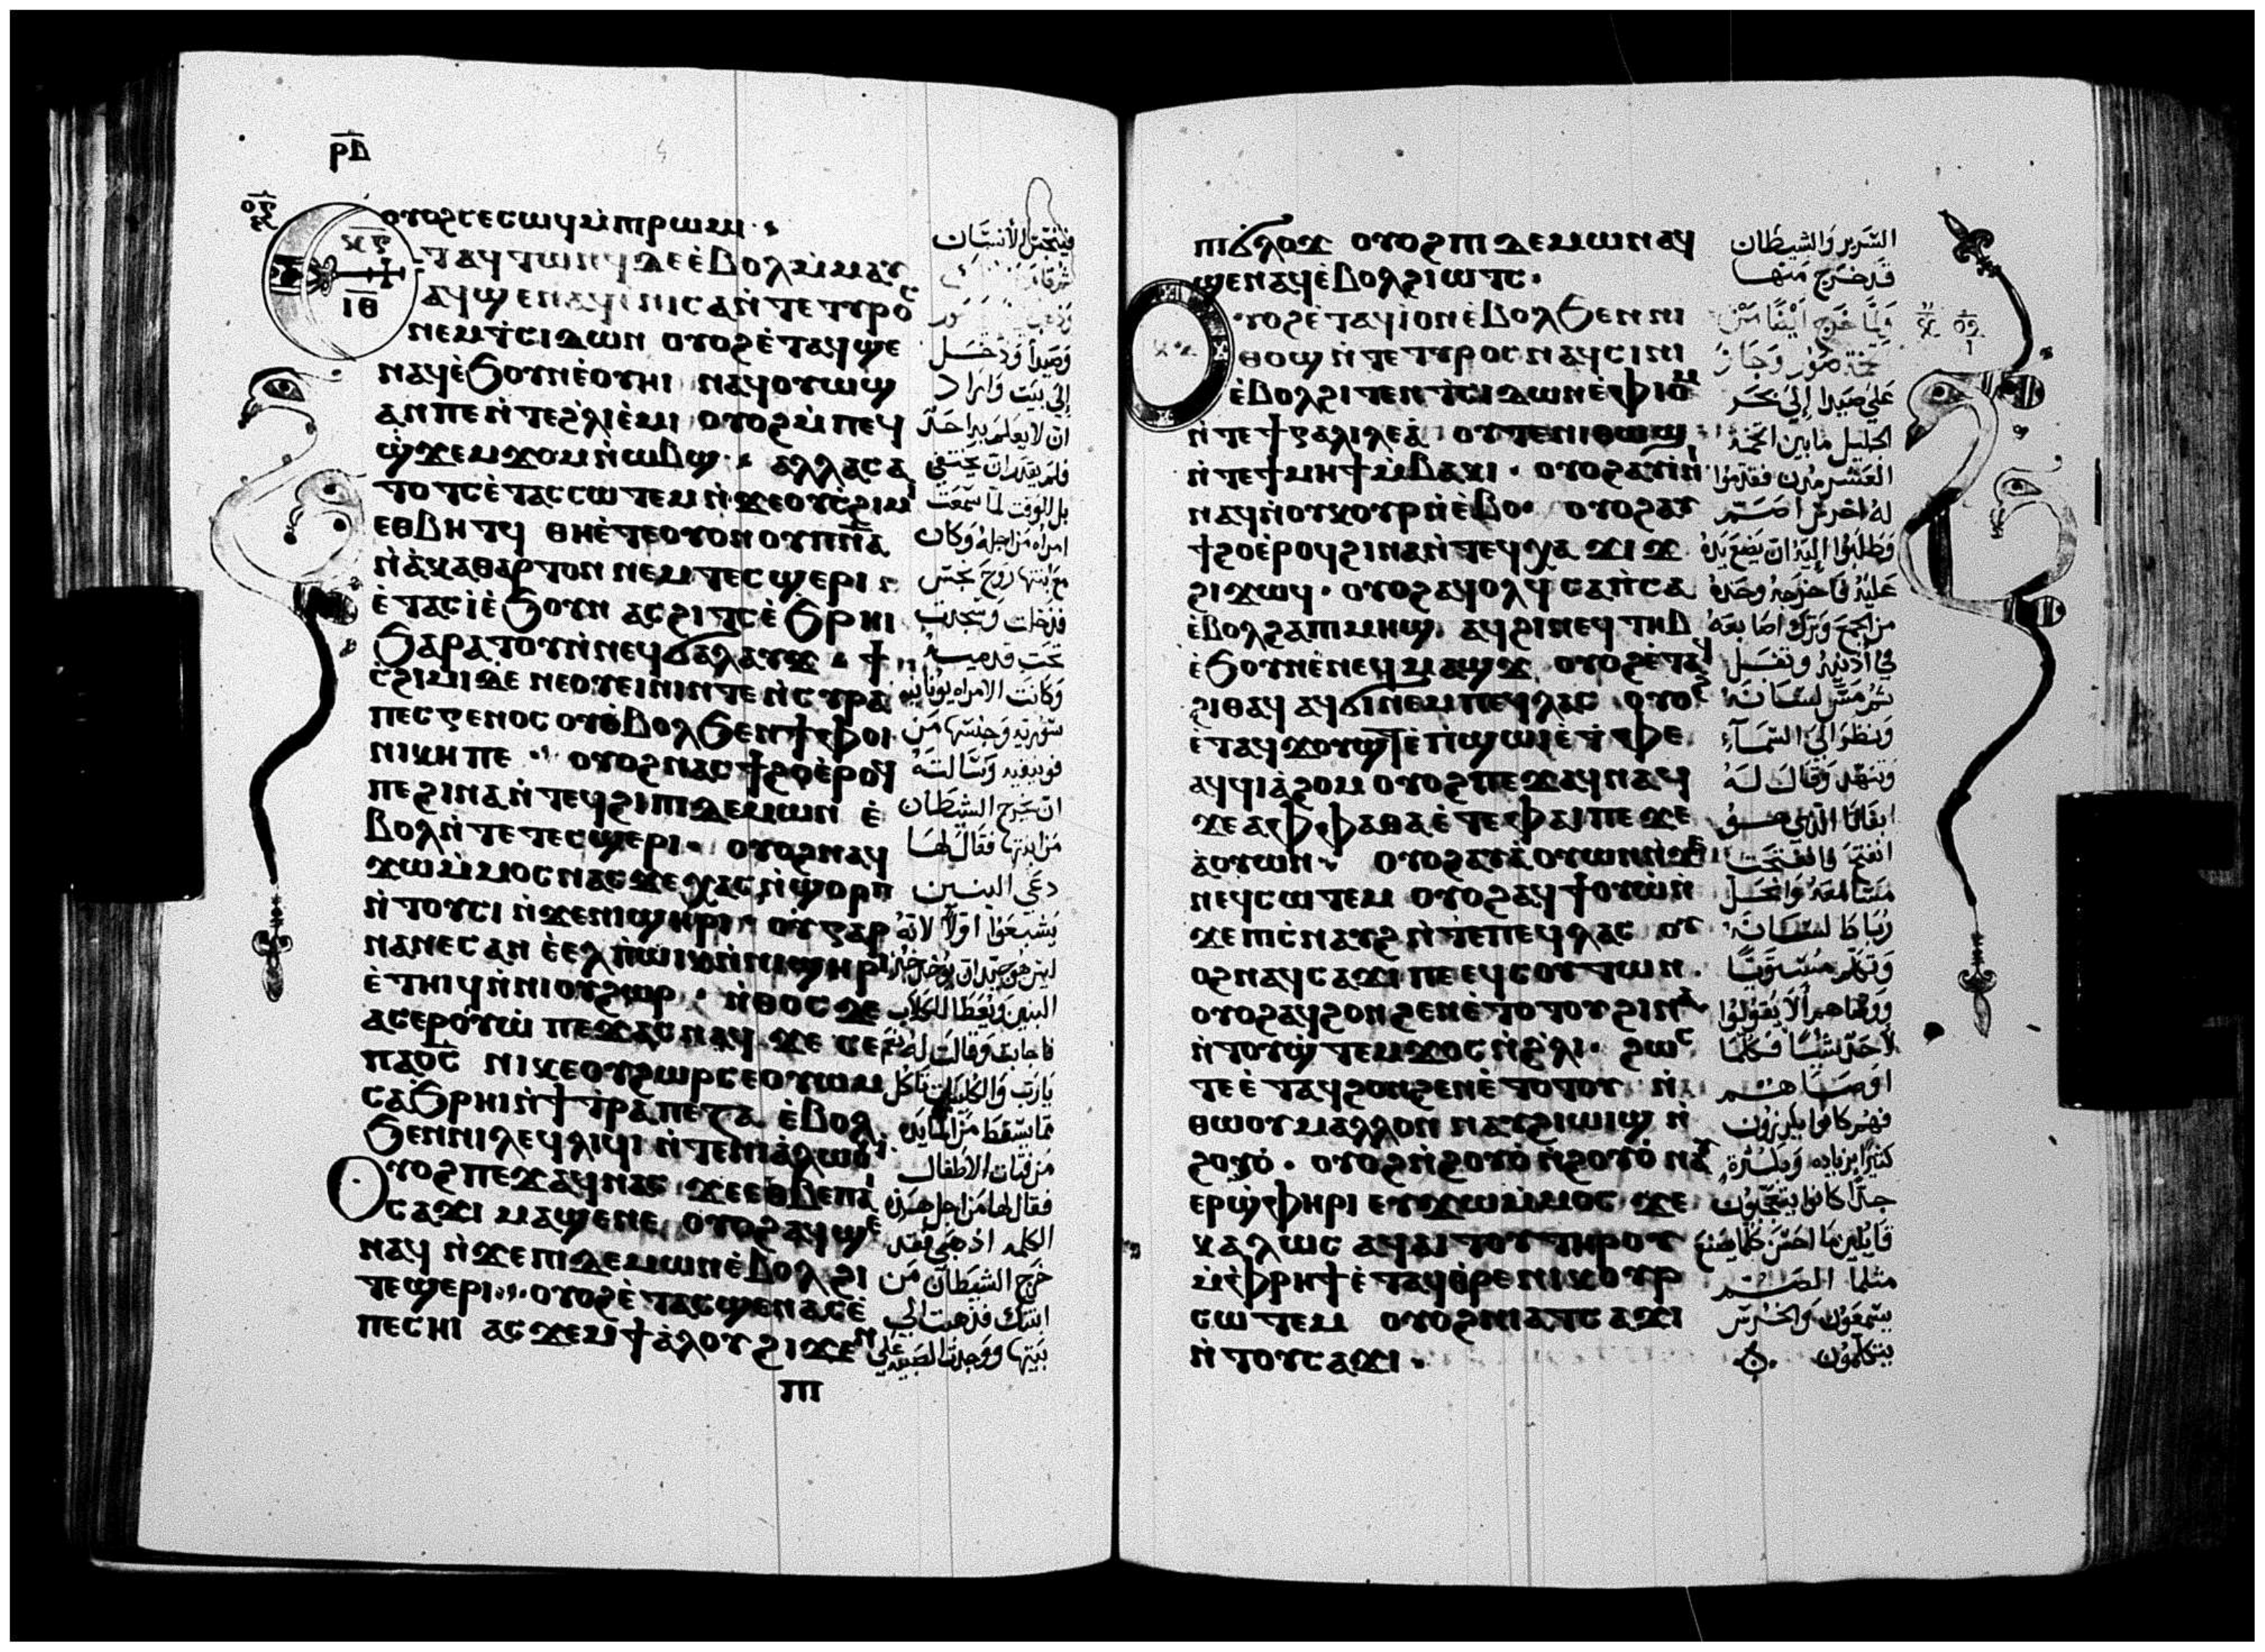 ⲣⲇ
ⲟⲩⲟϩⲥⲉⲥⲱϥⲙ̀ⲡⲓⲣⲱⲙⲓ
ⲓⲑ
ⲉⲧⲁϥⲧⲱⲛϥ ⲇⲉ ⲉ̀ⲃⲟⲗⲙ̀ⲙⲁⲩ
ⲁϥϣⲉⲛⲁϥ ⲉ̀ⲛⲓⲥⲁ ⲛ̀ⲧⲉ ⲧⲩⲣⲟⲥ
ⲛⲉⲙ ϯⲥⲓⲇⲱⲛ ⲟⲩⲟϩ ⲉ̀ⲧⲁϥϣⲉ
ⲛⲁϥ ⲉ̀ϧⲟⲩⲛ ⲉ̀ⲟⲩⲏⲓ ⲛⲁϥⲟⲩⲱϣ
ⲁⲛ ⲡⲉ ⲛ̀ⲧⲉϩ̀ⲗⲓ ⲉ̀ⲙⲓ ⲟⲩⲟϩ ⲙ̀ⲡⲉϥ
ϣ̀ϫⲉⲙϫⲟⲙ ⲛ̀ⲱⲃϣ ⲁⲗⲗⲁ ⲥⲁ
ⲧⲟⲧⲥ ⲉ̀ⲧⲁⲥⲥⲱⲧⲉⲙ ⲛ̀ϫⲉ ⲟⲩⲥϩⲓⲙⲓ
ⲉⲑⲃⲏⲧϥ ⲑⲏ ⲉ̀ⲧⲉ ⲟⲩⲟⲛ ⲟⲩⲡⲛ̅ⲁ̅
ⲛ̀ⲁ̀ⲕⲁⲑⲁⲣⲧⲟⲛ ⲛⲉⲙ ⲧⲉⲥϣⲉⲣⲓ
ⲉ̀ⲧⲁⲥⲓ̀ ⲉ̀ϧⲟⲩⲛ ⲁⲥϩⲓⲧⲥ ⲉ̀ϧⲣⲏⲓ
ϧⲁⲣⲁⲧⲟⲩ ⲛ̀ⲛⲉϥϭⲁⲗⲁⲩϫ ϯ
ⲥ̀ϩⲓⲙⲓ ⲇⲉ ⲛⲉ ⲟⲩⲉⲓⲛⲓⲛ ⲧⲉ ⲛ̀ⲥⲩⲣⲁ
ⲡⲉⲥⲅⲉⲛⲟⲥ ⲟⲩⲉ̀ⲃⲟⲗ ϧⲉⲛ ϯⲫⲟⲓ
ⲛⲓⲕⲏ ⲡⲉ ⲟⲩⲟϩ ⲛⲁⲥϯϩⲟ ⲉ̀ⲣⲟϥ
ⲡⲉ ϩⲓⲛⲁ ⲛ̀ⲧⲉϥϩⲓ ⲡⲓⲇⲉⲙⲱⲛ ⲉ̀
ⲃⲟⲗ ⲛ̀ⲧⲉ ⲧⲉⲥϣⲉⲣⲓ ⲟⲩⲟϩ ⲛⲁϥ
ϫⲱⲙ̀ⲙⲟⲥ ⲛⲁⲥ ϫⲉ ⲭⲁⲥ ⲛ̀ϣⲟⲣⲡ
ⲛ̀ⲧⲟⲩⲥⲓ ⲛ̀ϫⲉ ⲛⲓϣⲏⲣⲓ ⲟⲩ ⲅⲁⲣ
ⲛⲁⲛⲉⲥ ⲁⲛ ⲉ̀ⲉⲗ ⲡ̀ⲱⲓⲕ ⲛ̀ⲛⲓϣⲏⲣⲓ
ⲉ̀ⲧⲏⲓϥ ⲛ̀ⲛⲓⲟⲩϩⲱⲣ ⲛ̀ⲑⲟⲥ ⲇⲉ
ⲁⲥⲉⲣⲟⲩⲱ̀ ⲡⲉϫⲁⲥ ⲛⲁϥ ϫⲉ ⲥⲉ
ⲡⲁⲟ̅ⲥ̅ ⲛⲓⲕⲉⲟⲩϩⲱⲣ ⲥⲉⲟⲩⲱⲙ
ⲥⲁϧⲣⲏⲓ ⲛ̀ϯⲧ̀ⲣⲁⲡⲉⲍⲁ ⲉ̀ⲃⲟⲗ
ϧⲉⲛ ⲛⲓⲗⲉϥⲗⲓϥⲓ ⲛ̀ⲧⲉ ⲛⲓⲁ̀ⲗⲱⲟⲩⲓ
ⲟⲩⲟϩ ⲡⲉϫⲁϥ ⲛⲁⲥ ϫⲉ ⲉⲑⲃⲉ ⲡⲁⲓ
ⲥⲁϫⲓ ⲙⲁϣⲉⲛⲉ ⲟⲩⲟϩ ⲁϥϣⲉ
ⲛⲁϥ ⲛ̀ϫⲉ ⲡⲓⲇⲉⲙⲱⲛ ⲉ̀ⲃⲟⲗ ϩⲓ
ⲧⲉϣⲉⲣⲓ ⲟⲩⲟϩ ⲉ̀ⲧⲁⲥϣⲉⲛⲁⲥ ⲉ̀
ⲡⲉⲥⲏⲓ ⲁⲥϫⲉⲙ ϯⲁ̀ⲗⲟⲩ ϩⲓϫⲉⲛ
ⲡⲓ
فينجس الأنسان
وصيدا ودخل
إلى بيت واراد
ان لا يعلم به احد
فلم يقدر ان يختفي
بل للوقت لما سمعت
امراه من اجله وكان
مع ابنتها روح نجس
فدخلت وسجدت
تحت قدميه
وكانت الامراه يونانيه
سوريه وجنسها من
فونيقيه وسالته
ان يخرج الشيطان
من ابنتها فقال لها
دعي البنين
يشبعوا اولا لانه
ليس هو جيد ان يوخذ خبز
البنين ويعطا للكلاب
فاجابت وقالت له نعم
يارب والكلاب تاكل
مما يسقط من المايده
من فتات الاطفال
فقال لها من اجل هذه
الكلمه اذهبي فقد
خرج الشيطان من
ابنتك فذهبت الي
بيتها ووجدت الصبيه علي
ⲡⲓϭⲗⲟϫ ⲟⲩⲟϩ ⲡⲓⲇⲉⲙⲱⲛ ⲁϥ
ϣⲉⲛⲁϥ ⲉ̀ⲃⲟⲗ ϩⲓⲱⲧⲥ
ⲟⲩⲟϩ ⲉ̀ⲧⲁϥⲓ̀ ⲟⲛ ⲉ̀ⲃⲟⲗ ϧⲉⲛ ⲛⲓ
ⲑⲟϣ ⲛ̀ⲧⲉ ⲧⲩⲣⲟⲥ ⲛⲁϥⲥⲓⲛⲓ
ⲉ̀ⲃⲟⲗ ϩⲓⲧⲉⲛ ϯⲥⲓⲇⲱⲛ ⲉ̀ⲫⲓⲟⲙ
ⲛ̀ⲧⲉ ϯⲅⲁⲗⲓⲗⲉⲁ̀ ⲟⲩⲧⲉ ⲛⲓⲑⲱϣ
ⲛ̀ⲧⲉ ϯⲙⲏϯ ⲙ̀ⲃⲁⲕⲓ ⲟⲩⲟϩ ⲁⲩⲓ̀ⲛⲓ
ⲛⲁϥ ⲛ̀ⲟⲩⲕⲟⲩⲣ ⲛ̀ⲉ̀ⲃⲟ ⲟⲩⲟϩ ⲁⲩ
ϯϩⲟ ⲉ̀ⲣⲟϥ ϩⲓⲛⲁ ⲛ̀ⲧⲉϥⲭⲁ ϫⲓϫ
ϩⲓϫⲱϥ ⲟⲩⲟϩ ⲁϥⲟⲗϥ ⲥⲁⲡ̀ⲥⲁ
ⲉ̀ⲃⲟⲗ ϩⲁ ⲡⲓⲙⲏϣ ⲁϥϩⲓ ⲛⲉϥⲧⲏⲃ
ⲉ̀ϧⲟⲩⲛ ⲉ̀ⲛⲉϥⲙⲁϣϫ ⲟⲩⲟϩ ⲉ̀ⲧⲁϥ
ϩⲓⲑⲁϥ ⲁϥϭⲓⲛⲉⲙ ⲡⲉϥⲗⲁⲥ ⲟⲩⲟϩ
ⲉ̀ⲧⲁϥϫⲟⲩϣⲧ ⲉ̀ⲡ̀ϣⲱⲓ ⲉ̀ⲧ̀ⲫⲉ
ⲁϥϥⲓⲁ̀ϩⲟⲙ ⲟⲩⲟϩ ⲡⲉϫⲁϥ ⲛⲁϥ
ϫⲉ ⲁⲫⲫⲁⲑⲁ ⲉ̀ⲧⲉ ⲫⲁⲓ ⲡⲉ ϫⲉ
ⲁ̀ⲟⲩⲱⲛ ⲟⲩⲟϩ ⲁⲩⲁ̀ⲟⲩⲱⲛ ⲛ̀ϫⲉ
ⲛⲉϥⲥⲱⲧⲉⲙ ⲟⲩⲟϩ ⲁϥϯⲟⲩⲱ̀ ⲛ̀
ϫⲉ ⲡⲓⲥ̀ⲛⲁⲩϩ ⲛ̀ⲧⲉ ⲡⲉϥⲗⲁⲥ ⲟⲩ
ⲟϩ ⲛⲁϥⲥⲁϫⲓ ⲡⲉ ⲉϥⲥⲟⲩⲧⲱⲛ
ⲟⲩⲟϩ ⲁϥϩⲟⲛϩⲉⲛ ⲉ̀ⲧⲟⲧⲟⲩ ϩⲓⲛⲁ
ⲛ̀ⲧⲟⲩϣ̀ⲧⲉⲙϫⲟⲥ ⲛ̀ϩ̀ⲗⲓ ϩⲱⲥ
ⲧⲉ ⲉ̀ⲧⲁϥϩⲟⲛϩⲉⲛ ⲉ̀ⲧⲟⲧⲟⲩ ⲛ̀
ⲑⲱⲟⲩ ⲙⲁⲗⲗⲟⲛ ⲛⲁⲩϩⲓⲱⲓϣ ⲛ̀
ϩⲟⲩⲟ̀ ⲟⲩⲟϩ ⲛ̀ϩⲟⲩⲟ̀ ⲛ̀ϩⲟⲩⲟ̀ ⲛⲁⲩ
ⲉⲣϣ̀ⲫⲏⲣⲓ ⲉⲩϫⲱⲙ̀ⲙⲟⲥ ϫⲉ
ⲕⲁⲗⲱⲥ ⲁϥⲁⲓⲧⲟⲩ ⲧⲏⲣⲟⲩ
ⲙ̀ⲫⲣⲏϯ ⲉ̀ⲧⲁϥⲑ̀ⲣⲉ ⲛⲓⲕⲟⲩⲣ
ⲥⲱⲧⲉⲙ ⲟⲩⲟϩ ⲛⲓⲁⲧⲥⲁϫⲓ
ⲛ̀ⲧⲟⲩⲥⲁϫⲓ
السرير والشيطان
قد خرج منها
ولما خرج ايضا من
تخوم صور وجاز
علي صيدا إلي بحر
الجليل ما بين تخوم
العشر مدن فقدموا
له اخرس اصم
وطلبوا إليه ان يضع يده
عليه فاخرجه وحده
من الجمع وترك اصابعه
في أذنيه وتفل
ثم مس لسانه
ونظر الي السماء
وتنهد وقال له
افاثا الذي هو
انفتح فانفتحت
مسامعه وانحل
رباط لسانه
وتكلم مستويا
ووصاهم ألا يقولوا
لأحد شيا فكلما
اوصاهم
فهم كانوا يكرزون
كثيرا بزياده وبكثرة
جدا كانوا يتعجبون
قايلين ما احسن كلما يصنع
مثلما الصم
يسمعون والخرس
يتكلمون